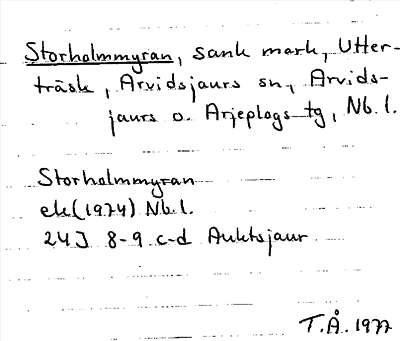 Storholmmyran, sank mark, Utter-
träsk, Arvidsjaurs sn, Arvids-
jaurs o. Arjeplogs tg, Nb. l.
Storholmmyran
ek (1974) Nb. l.
24J 8-9 c-d Auktsjaur
T.Å. 1977